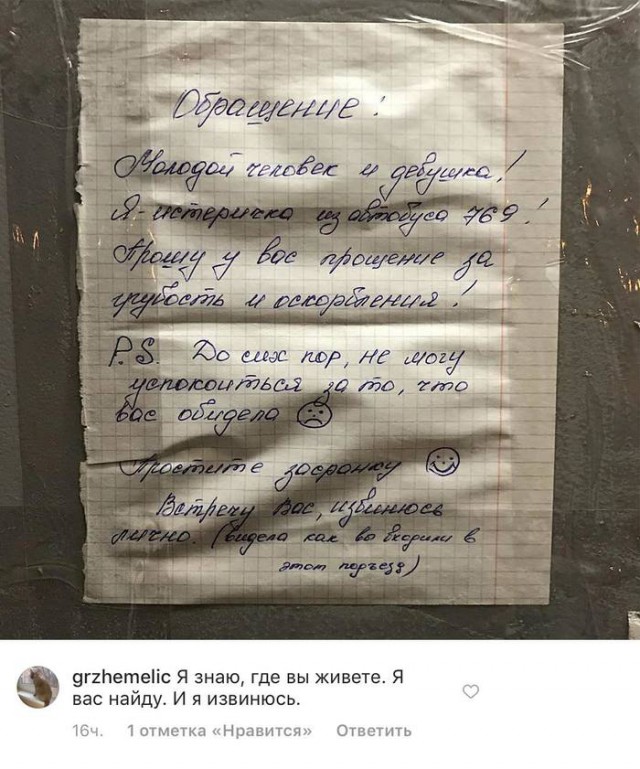 Обращение!
Молодой человек и девушка!
Я - истеричка из автобуса 769!
Прошу у вас прощение за
грубость и оскорбления!
P.S. До сих пор, не могу
успокоиться за то, что
вас обидела
Простите засранку
Встречу вас, извинюсь
лично. (видела как вы входили в
этот подъезд)
grzhemelic Я знаю, где вы живете. Я
вас найду. И я извинюсь.
16ч. 1 отметка «Нравится» Ответить